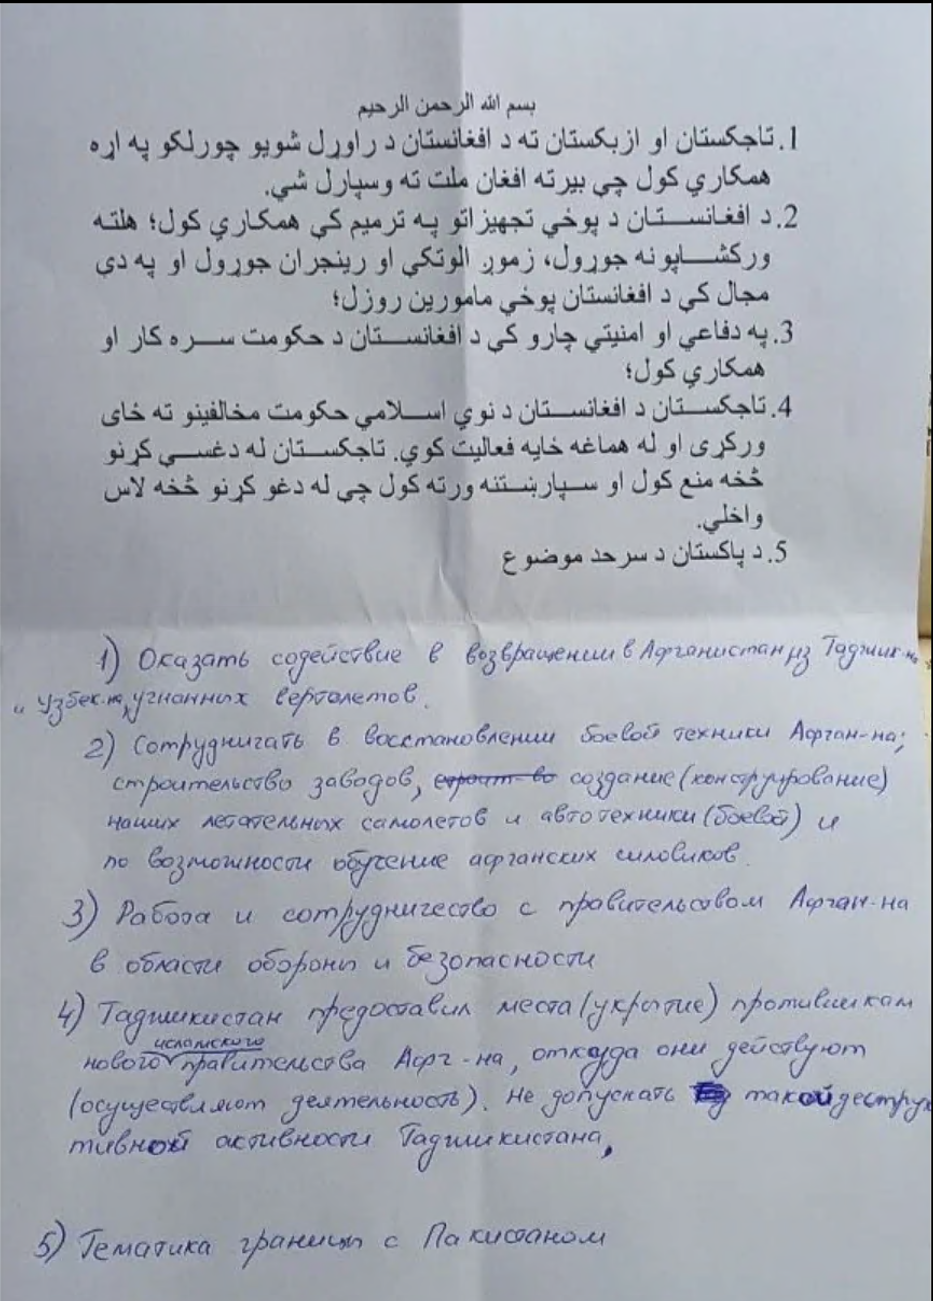 بسم الله الرحمن الرحيم
1. تاجکستان او ازبکستان ته د افغانستان د راوړل شويو چورلکو په اړه
همکاري کول چي بيرته افغان ملت ته وسپارل شي.
2. د افغانستان د پوځي تجهيزاتو په ترميم کي همکاري کول؛ هلته
ورکشاپونه جوړول، زموږ الوتکي او رينجران جوړول او په دې
مجال کي د افغانستان پوځي مامورين روزل؛
3. په دفاعي او امنيتي چارو کي د افغانستان د حکومت سره کار او
همکاري کول؛
4. تاجکستان د افغانستان د نوي اسلامي حکومت مخالفينو ته ځای
ورکړی او له هماغه ځايه فعاليت کوي. تاجکستان له دغسي کړنو
څخه منع کول او سپارښتنه ورته کول چي له دغو کړنو څخه لاس
واخلي.
5. د پاکستان د سرحد موضوع
1) Оказать содействие в возвращении в Афганистан из Таджик-на
и Узбек-на, угнанных вертолетов.
2) Сотрудничать в восстановлении боевой техники Афган-на;
строительство заводов, строит-во создание (конструирование)
наших летательных самолетов и автотехники (боевой) и
по возможности обучение афганских силовиков.
3) Работа и сотрудничество с правительсвом Афган-на
в области обороны и безопасности
4) Таджикистан предоставил места (укрытие) противникам
исламского
нового правительства Афг-на, откуда они действуют
(осуществляют деятельность). Не допускать такой деструк
тивной активности Таджикистана,
5) Тематика границы с Пакистаном